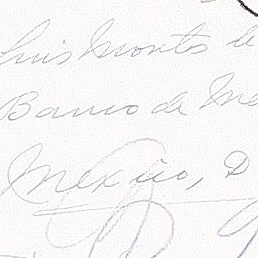 Luis Montes de
Banco de Me
Mexico, D